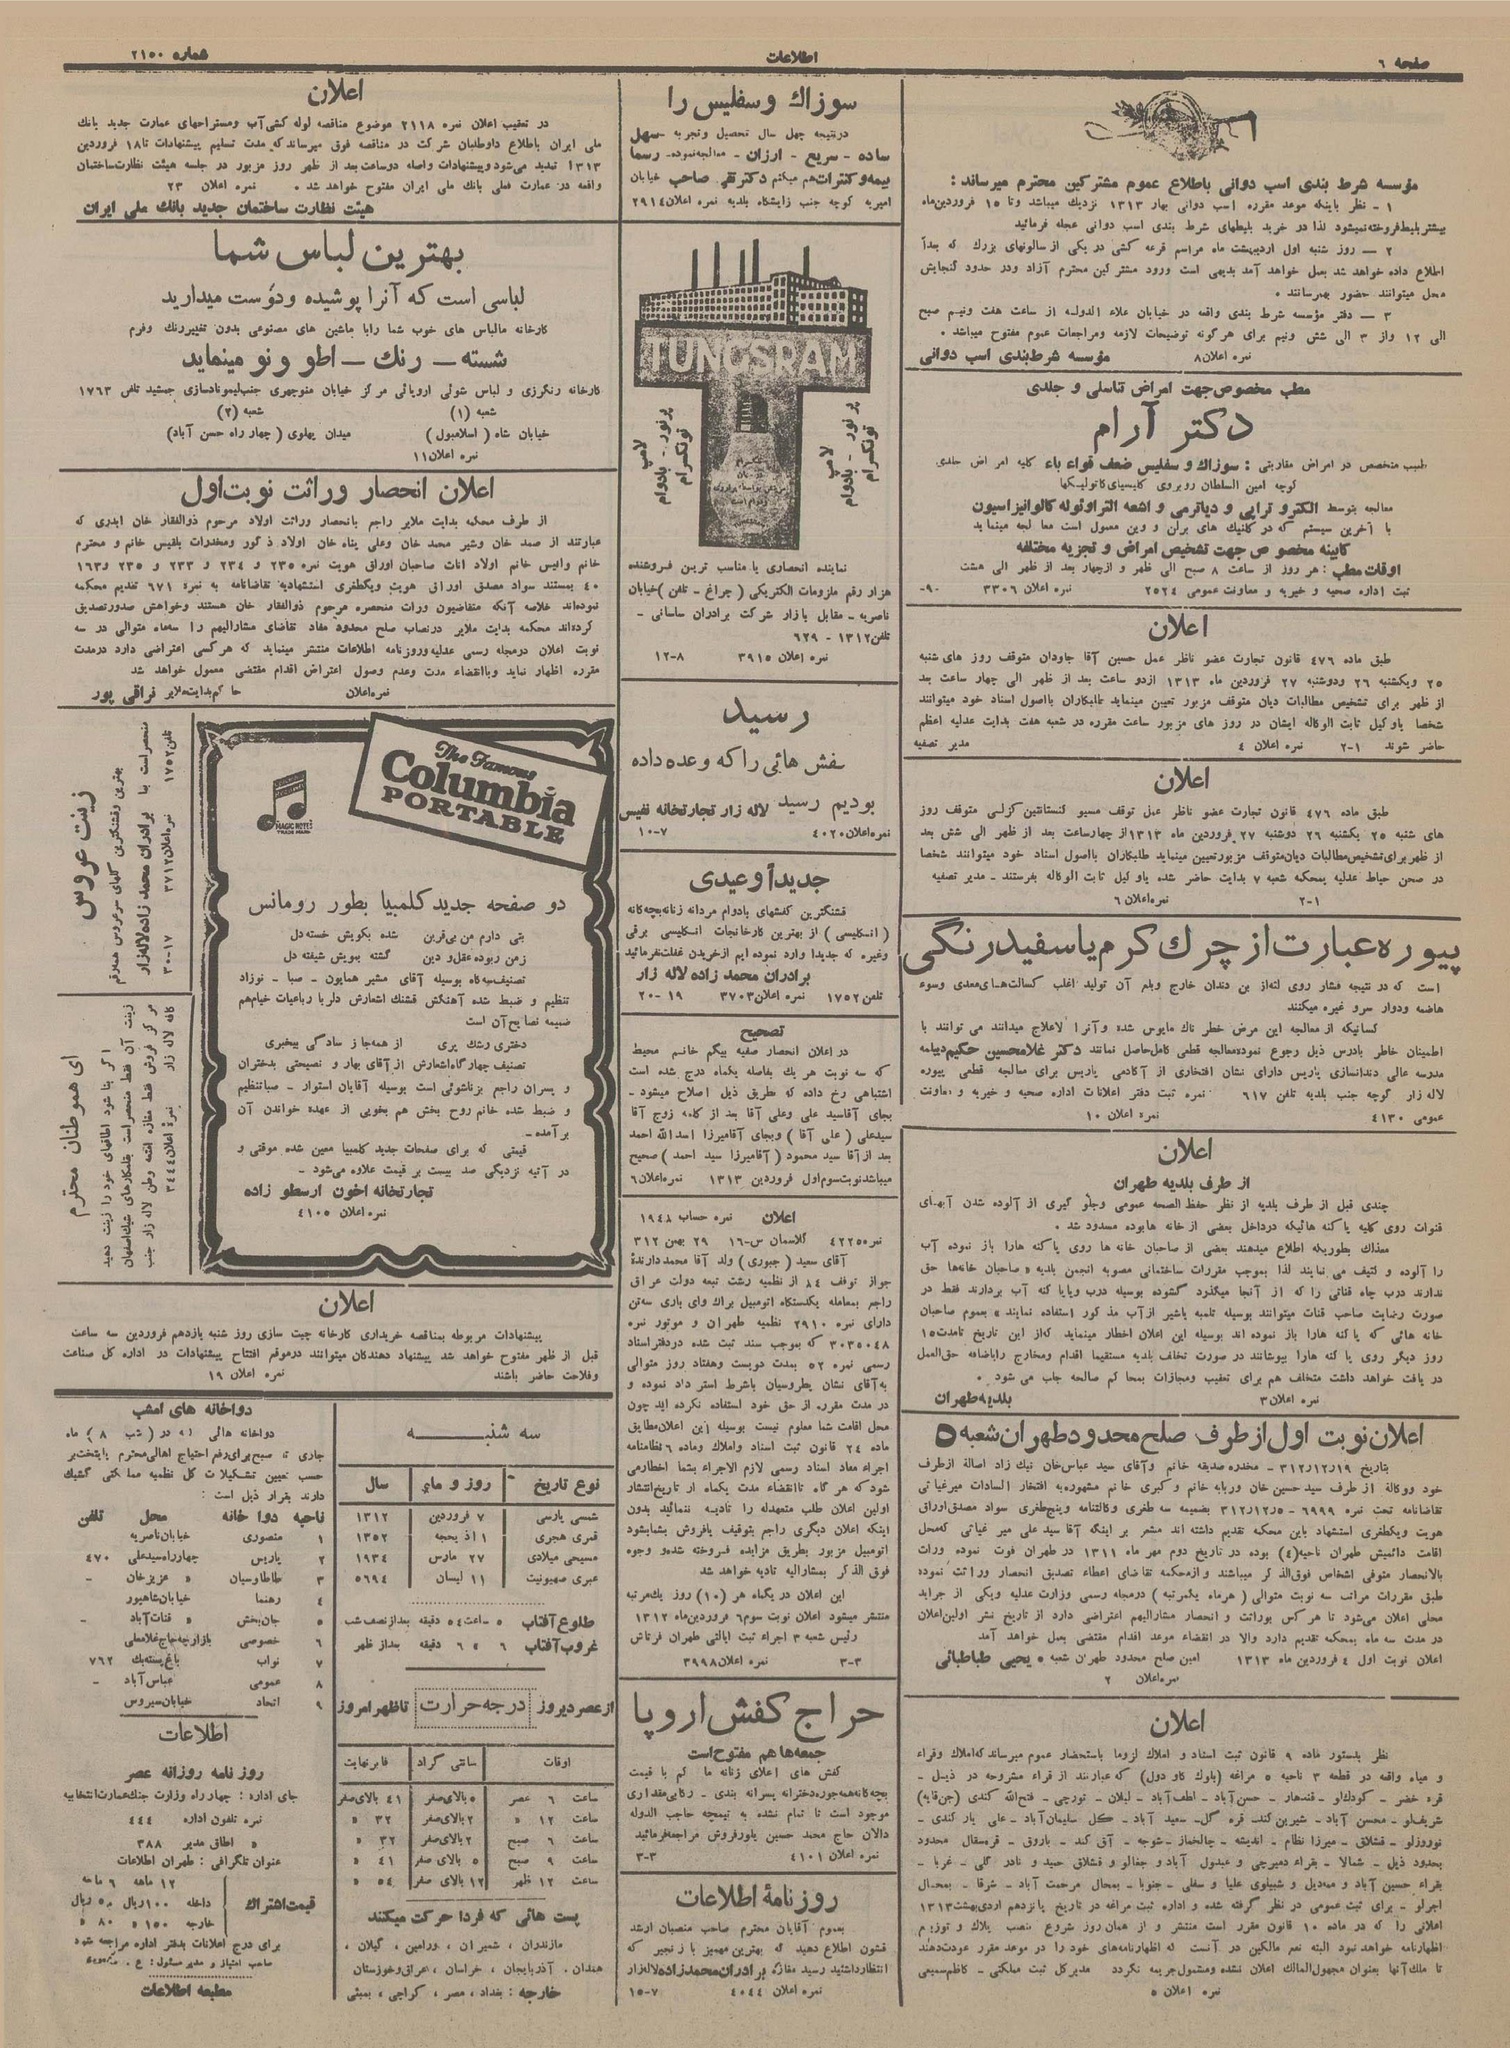 صفحه ٦
اطلاعات
شماره ٢١٥٠
مؤسسه شرط بندی اسب دوانی باطلاع عموم مشترکین محترم میرساند :
١ - نظر باینکه موعد مقرره اسب دوانی بهار ١٣١٣ نزدیك میباشد وتا ١٥ فروردین‌ماه
بیشتر بلیط فروخته نمیشود لذا در خرید بلیطهای شرط بندی اسب دوانی عجله فرمائید
٢ — روز شنبه اول اردیبهشت ماه مراسم قرعه کشی در یکی از سالونهای بزرك که بعداً
اطلاع داده خواهد شد بعمل خواهد آمد بدیهی است ورود مشترکین محترم آزاد ودر حدود گنجایش
محل میتوانند حضور بهم‌رسانند .
٣ — دفتر مؤسسه شرط بندی واقعه در خیابان علاء الدوله از ساعت هفت ونیم صبح
الی ١٢ واز ٣ الی شش ونیم برای هرگونه توضیحات لازمه ومراجعات عموم مفتوح میباشد .
نمره اعلان ٨ مؤسسه شرط‌بندی اسب دوانی
مطب مخصوص جهت امراض تناسلی و جلدی
دکتر آرام
طبیب متخصص در امراض مقاربتی : سوزاك و سفلیس ضعف قواء باء کلیه امراض جلدی
کوچه امین السلطان روبروی کلیسیای کاتولیکها
معالجه بتوسط الکترو تراپی و دیاترمی و اشعه التراوئوله کالوانیزاسیون
با آخرین سیستم که در کلنیك های برلن و وین معمول است معالجه مینماید
کابینه مخصوص جهت تشخیص امراض و تجزیه مختلفه
اوقات مطب : هر روز از ساعت ٨ صبح الی ظهر و ازچهار بعد از ظهر الی هشت
ثبت اداره صحیه و خیریه و معاونت عمومی ٢٥٢٤ نمره اعلان ٣٣٠٦ ٩٠-
اعلان
طبق ماده ٤٧٦ قانون تجارت عضو ناظر عمل حسین آقا جاودان متوقف روز های شنبه
٢٥ ویکشنبه ٢٦ ودوشنبه ٢٧ فروردین ماه ١٣١٣ ازدو ساعت بعد از ظهر الی چهار ساعت بعد
از ظهر برای تشخیص مطالبات دیان متوقف مزبور تعیین مینماید طلبکاران بااصول اسناد خود میتوانند
شخصا یاوکیل ثابت الوکاله ایشان در روز های مزبور ساعت مقرره در شعبه هفت بدایت عدلیه اعظم
حاضر شوند ١-٢ نمره اعلان ٤ مدیر تصفیه
اعلان
طبق ماده ٤٧٦ قانون تجارت عضو ناظر عمل توقف مسیو کنستانتین کزلی متوقف روز
های شنبه ٢٥ یکشنبه ٢٦ دوشنبه ٢٧ فروردین ماه ١٣١٣ ازچهارساعت بعد از ظهر الی شش بعد
از ظهر برای تشخیص مطالبات دیان متوقف مزبور تعیین مینماید طلبکاران بااصول اسناد خود میتوانند شخصا
در صحن حیاط عدلیه بمحکمه شعبه ٧ بدایت حاضر شده یاوکیل ثابت الوکاله بفرستند - مدیر تصفیه
١-٢ نمره اعلان ٦
پیوره عبارت از چرك کرم یا سفید رنگی
است که در نتیجه فشار روی لثه‌از بن دندان خارج وبلع آن تولید اغلب کسالت‌های معدی وسوء
هاضمه ودوار سرو غیره میکنند
کسانیکه از معالجه این مرض خطر ناك مایوس شده وآنرا لاعلاج میدانند می توانند با
اطمینان خاطر بادرس ذیل رجوع نموده‌معالجه قطعی کامل‌حاصل نمایند دکتر غلامحسین حکیم دیپلمه
مدرسه عالی دندانسازی پاریس دارای نشان افتخاری از آکادمی پاریس برای معالجه قطعی پیوره
لاله زار کوچه جنب بلدیه تلفن ٦١٧ نمره ثبت دفتر اعلانات اداره صحیه و خیریه و معاونت
عمومی ٤١٣٠ نمره اعلان ١٠
اعلان
از طرف بلدیه طهران
چندی قبل از طرف بلدیه از نظر حفظ الصحه عمومی وجلو گیری از آلوده شدن آبهای
قنوات روی کلیه پاکنه هائیکه درداخل بعضی از خانه هابوده مسدود شد .
معذلك بطوریکه اطلاع میدهند بعضی از صاحبان خانه ها روی پاکنه هارا باز نموده آب
را آلوده و کثیف می نمایند لذا بموجب مقررات ساختمانی مصوبه انجمن بلدیه « صاحبان خانه‌ها حق
ندارند درب چاه قناتی را که از آنجا میگذرد گشوده بوسیله درب وپایا کنه آب بردارند فقط در
صورت رضایت صاحب قنات میتوانند بوسیله تلمبه یاشیر ازآب مذکور استفاده نمایند » بعموم صاحبان
خانه هائی که پاکنه هارا باز نموده اند بوسیله این اعلان اخطار مینماید که‌از این تاریخ تامدت ١٥
روز دیگر روی پا کنه هارا بپوشانند در صورت تخلف بلدیه مستقیما اقدام ومخارج راباضافه حق‌العمل
در یافت خواهد داشت متخلف هم برای تعقیب ومجازات بمحاکم صالحه جلب می شود .
نمره اعلان ٣ بلدیه طهران
اعلان نوبت اول از طرف صلح محدود طهران شعبه ٥
بتاریخ ٣١٢/١٢/١٩ - مخدره صدیقه خانم وآقای سید عباس‌خان نیك زاد اصالة ازطرف
خود ووکالة از طرف سید حسین خان وربابه خانم و کبری خانم مشهوره به افتخار السادات میرغیاثی
تقاضانامه تحت نمره ٦٩٩٩ - ٣١٢/١٢/٥ بضمیمه سه طغری وکالتنامه وپنجطغری سواد مصدق اوراق
هویت ویکطغری استشهاد باین محکمه تقدیم داشته اند مشعر بر اینکه آقا سید علی میر غیاثی که‌محل
اقامت دائمیش طهران ناحیه(٤) بوده در تاریخ دوم مهر ماه ١٣١١ در طهران فوت نموده وراث
بالانحصار متوفی اشخاص فوق‌الذکر میباشند وازمحکمه تقاضای اعطاء تصدیق انحصار وراثت نموده
طبق مقررات مراتب سه نوبت متوالی (هرماه یکمرتبه) درمجله رسمی وزارت عدلیه ویکی از جراید
محلی اعلان می‌شود تا هرکس بوراثت و انحصار مشارالیهم اعتراضی دارد از تاریخ نشر اولین‌اعلان
در مدت سه ماه بمحکمه تقدیم دارد والا در انقضاء موعد اقدام مقتضی بعمل خواهد آمد
اعلان نوبت اول ٤ فروردین ماه ١٣١٣ امین صلح محدود طهران شعبه ٥ یحیی طباطبائی
نمره‌اعلان ٢
اعلان
نظر بدستور ماده ٩ قانون ثبت اسناد و املاك لزوما باستحضار عموم میرساند که‌املاك وقراء
و میاه واقعه در قطعه ٣ ناحیه ٥ مراغه (بلوك کاو دول) که عبارتند از قراء مشروحه در ذیل -
بحدود ذیل - شمالا - بقراء دمیرچی
اجرلو - برای ثبت عمومی در نظر گرفته شده و اداره ثبت مراغه در تاریخ پانزدهم اردیبهشت ١٣١٣
اعلانی را که در ماده ١٠ قانون مقرر است منتشر و از همان روز شروع بنصب پلاك و توزیع
اظهارنامه خواهد نمود البته نفع مالکین در آنست که اظهارنامه‌های خود را در موعد مقرر عودت‌دهند
تا ملك آنها بعنوان مجهول‌المالك اعلان نشده ومشمول جریمه نگردد مدیرکل ثبت مملکتی - کاظم‌سمیعی
نمره اعلان ٥
سوزاك وسفلیس را
درنتیجه چهل سال تحصیل وتجربه -سهل
ساده - سریع - ارزان - معالجه‌نموده- رسما
بیمه‌وکنترات‌هم میکنم دکترتقی صاحب خیابان
امیریه کوچه جنب زایشگاه بلدیه نمره اعلان ٢٩١٤
TUNGSRAM
لامپ پر نور - بادوام تونگسرام
لامپ پرنور - بادوام تونگسرام
نماینده انحصاری با مناسب ترین فروشنده
هزار رقم ملزومات الکتریکی (چراغ - تلفن) خیابان
ناصریه - مقابل بازار شرکت برادران ساسانی -
تلفن ١٣١٢ - ٦٢٩
نمره اعلان ٣٩١٥ ٨-١٢
رسید
کفش هائی را که وعده داده
بودیم رسید لاله زار تجارتخانه نفیس
نمره اعلان ٤٠٢٠ ٧-١٠
جدیداً وعیدی
قشنگترین کفشهای بادوام مردانه زنانه‌بچه‌گانه
(انگلیسی) از بهترین کارخانجات انگلیسی برقی
وغیره که جدیدا وارد نموده ایم ازخریدن غفلت‌نفرمائید
برادران محمد زاده لاله زار
تلفن ١٧٥٢ نمره اعلان ٣٧٠٣ ١٩ -٢٠
تصحیح
در اعلان انحصار صفیه بیگم خانم محیط
که سه نوبت هر یك بفاصله یکماه درج شده است
اشتباهی رخ داده که طریق ذیل اصلاح میشود -
بجای آقاسید علی وعلی آقا بعد از کلمه زوج آقا
سیدعلی (علی آقا) وبجای آقامیرزا اسدالله احمد
بعد ازآقا سید محمود (آقامیرزا سید احمد) صحیح
میباشد نوبت‌سوم اول فروردین ١٣١٣ نمره‌اعلان ٦
اعلان نمره حساب ١٩٤٨
نمره ٤٢٢٥٥ کلاسمان س-١٦ ٢٩ بهمن ٣١٢
آقای سعید (جبوری) ولد آقا محمد دارندهٔ
جواز توقف ٨٤ از نظمیه رشت تبعه دولت عراق
راجع بمعامله یکدستگاه اتومبیل براك وای باری سه‌تن
دارای نمره ٢٩١٠ نظمیه طهران و موتور نمره
٣٠٣٥٠٤٨ که بموجب سند ثبت شده دردفتراسناد
رسمی نمره ٥٢ بمدت دویست وهفتاد روز متوالی
به‌آقای نشان پطروسیان باشرط استرداد نموده و
در مدت مقرره از حق خود استفاده نکرده اید چون
محل اقامت شما معلوم نیست بوسیله این اعلان‌مطابق
ماده ٢٤ قانون ثبت اسناد واملاك وماده ٦ نظامنامه
اجراء مفاد اسناد رسمی لازم الاجراء بشما اخطارمی
شود که هر گاه تاانقضاء مدت یکماه از تاریخ‌انتشار
اولین اعلان طلب متعهدله را تادیه ننمائید بدون
اینکه اعلان دیگری راجع بتوقیف یافروش بشمابشود
اتومبیل مزبور بطریق مزایده فروخته شده‌و وجوه
فوق الذکر بمشارالیه تادیه خواهد شد
این اعلان در یکماه هر (١٠) روز یك‌مرتبه
منتشر میشود اعلان نوبت سوم ٦ فروردین‌ماه ١٣١٢
رئیس شعبه ٣ اجراء ثبت ایالتی طهران فرتاش
٣-٣ نمره اعلان ٣٩٩٨
حراج کفش اروپا
جمعه‌ها هم مفتوح‌است
کفش های اعلای زنانه ما کم با قیمت
بچه‌گانه‌همه‌جوره‌دخترانه پسرانه بندی - رکابی‌مقداری
موجود است تا تمام نشده به تیمچه حاجب الدوله
دالان حاج محمد حسین یاورفروش مراجعه‌فرمائید
نمره اعلان ٤١٠١ ٣-٣
روزنامهٔ اطلاعات
بعموم آقایان محترم صاحب منصبان ارشد
قشون اطلاع دهید که بهترین مهمیز با زنجیر که
انتظارداشتید رسید مغازه برادران‌محمدزاده‌لاله‌زار
نمره اعلان ٤٠٤٤ ٧-١٥
اعلان
در تعقیب اعلان نمره ٢١١٨ موضوع مناقصه لوله کشی‌آب ومستراحهای عمارت جدید بانك
ملی ایران باطلاع داوطلبان شرکت در مناقصه فوق میرساند که مدت تسلیم پیشنهادات تا ١٨ فروردین
١٣١٣ تمدید می‌شود وپیشنهادات واصله دوساعت بعد از ظهر روز مزبور در جلسه هیئت نظارت ساختمان
واقعه در عمارت فعلی بانك ملی ایران مفتوح خواهد شد . نمره اعلان ٢٣
هیئت نظارت ساختمان جدید بانك ملی ایران
بهترین لباس شما
لباسی است که آنرا پوشیده ودوست میدارید
کارخانه مالباس های خوب شما رابا ماشین های مصنوعی بدون تغییررنك وفرم
شسته - رنك - اطو ونو مینماید
کارخانه رنگرزی و لباس شوئی اروپائی مرکز خیابان منوچهری جنب‌لیمونادسازی جمشید تلفن ١٧٦٣
شعبه (١) شعبه (٢)
خیابان شاه (اسلامبول) میدان پهلوی (چهار راه حسن آباد)
نمره اعلان ١١
اعلان انحصار وراثت نوبت اول
از طرف محکمه بدایت ملایر راجع بانحصار وراثت اولاد مرحوم ذوالفقار خان ابدری که
عبارتند از صمد خان وشیر محمد خان وعلی پناه خان اولاد ذکور ومخدرات بلقیس خانم و محترم
خانم وانیس خانم اولاد اناث صاحبان اوراق هویت نمره ٢٣٥ و ٢٣٤ و ٢٣٣ و ٢٣٥ و ١٦٣
٤٠ بمستند سواد مصدق اوراق هویت ویکطغری استشهادیه تقاضانامه به نمره ٦٧١ تقدیم محکمه
نموده‌اند خلاصه آنکه متقاضیون وراث منحصره مرحوم ذوالفقار خان هستند وخواهش صدورتصدیق
کرده‌اند محکمه بدایت ملایر درنصاب صلح محدود مفاد تقاضای مشارالیهم را سه‌ماه متوالی در سه
نوبت اعلان درمجله رسمی عدلیه وروزنامه اطلاعات منتشر مینماید که هرکسی اعتراضی دارد درمدت
مقرره اظهار نماید وباانقضاء مدت وعدم وصول اعتراض اقدام مقتضی معمول خواهد شد
نمره‌اعلان حاکم‌بدایت‌ملایر فراقی پور
The Famous
Columbia
PORTABLE
MAGIC NOTES
TRADE MARK
دو صفحه جدید کلمبیا بطور رومانس
بتی دارم من بی‌قرین شده بکویش خسته دل
زمن ربوده عقل‌و دین گشته ببویش شیفته دل
تصنیف‌سه‌گاه بوسیله آقای مشیر همایون - صبا - نوزاد
تنظیم و ضبط شده آهنگش قشنك اشعارش دلربا رباعیات خیام‌هم
ضمیمه نصایح‌آن است
دختری رشك پری از همه‌جا ز سادگی بیخبری
تصنیف چهارگاه‌اشعارش ازآقای بهار و نصیحتی بدختران
و پسران راجع بزناشوئی است بوسیله آقایان استوار - صباتنظیم
و ضبط شده خانم روح بخش هم بخوبی از عهده خواندن آن
برآمده -
قیمتی که برای صفحات جدید کلمبیا معین شده موقتی و
در آتیه نزدیکی صد بیست بر قیمت علاوه می‌شود -
تجارتخانه اخون ارسطو زاده
نمره اعلان ٤١٠٥
زینت عروس
بهترین وقشنگترین گلهای سرعروس همه‌رقم
منحصر است با برادران محمد زاده‌لاله‌زار
تلفن ١٧٥٢ نمره‌اعلان ٣٧١٢ ١٧-٣٠
ای هموطنان محترم
اگر بنا شود اطاقهای خود را زینت دهید
زینت آن فقط منحصراست بقلمکارهای شیك‌اصفهان
مرکز فروش فقط مغازه اقمشه وطن لاله زار جنب
کافه لاله زار نمره‌اعلان ٣٤٤٤
اعلان
پیشنهادات مربوطه بمناقصه خریداری کارخانه چیت سازی روز شنبه یازدهم فروردین سه ساعت
قبل از ظهر مفتوح خواهد شد پیشنهاد دهندگان میتوانند درموقع افتتاح پیشنهادات در اداره کل صناعت
وفلاحت حاضر باشند نمره اعلان ١٩
سه شنبه
نوع تاریخ روز و ماه سال
شمسی پارسی ٧ فروردین ١٣١٢
قمری هجری ١١ ذیحجه ١٣٥٢
مسیحی میلادی ٢٧ مارس ١٩٣٤
عبری صهیونیت ١١ نیسان ٥٦٩٤
طلوع آفتاب ٥ ساعت ٥٤ دقیقه بعداز نصف شب
غروب آفتاب ٦ ٦ دقیقه بعداز ظهر
ازعصردیروز درجه حرارت تاظهرامروز
اوقات سانتی گراد فارنهایت
ساعت ٦ عصر ٥ بالای صفر ٤١ بالای‌صفر
ساعت ١٢ « ٢ بالای صفر ٣٢ «
ساعت ٦ صبح ٢ بالای صفر ٣٢ «
ساعت ٩ صبح ٥ بالای صفر ٤١ «
ساعت ١٢ ظهر ١٢ بالای صفر ٥٤ «
پست هائی که فردا حرکت میکنند
مازندران ، شمیران ، ورامین ، گیلان ،
همدان . آذربایجان ، خراسان ، عراق‌وخوزستان
خارجه : بغداد ، مصر ، کراچی ، بمبئی
دواخانه های امشب
دواخانه هائی که در (شب ٨) ماه
جاری تا صبح‌برای‌رفع احتیاج اهالی‌محترم پایتخت‌بر
حسب تعیین تشکیلات کل نظمیه مملکتی کشیك
دارند بقرار ذیل است :
ناحیه دوا خانه محل تلفن
١ منصوری خیابان‌ناصریه
٢ پاریس چهارراه‌سیدعلی ٤٧٠
٣ طاطاوسیان « عزیزخان -
٤ رهنما خیابان‌شاهپور
٥ جان‌بخش « قنات‌آباد -
٦ خصوصی بازارچه‌حاج‌غلامعلی
٧ نواب باغ‌پسته‌بك ٧٦٢
٨ عمومی عباس‌آباد -
٩ اتحاد خیابان‌سیروس
اطلاعات
روز نامه روزانه عصر
جای اداره : چهار راه وزارت جنك‌عمارت‌انتخابیه
نمره تلفون اداره ٤٤٤
« اطاق مدیر ٣٨٨
عنوان تلگرافی : طهران اطلاعات
قیمت‌اشتراك ١٢ ماهه ٦ ماهه
داخله ١٠٠ریال ٥٠ ریال
خارجه ١٥٠ « ٨٠ «
برای درج اعلانات بدفتر اداره مراجعه شود
صاحب امتیاز و مدیر مسئول : ع . مسعودی
مطبعه اطلاعات